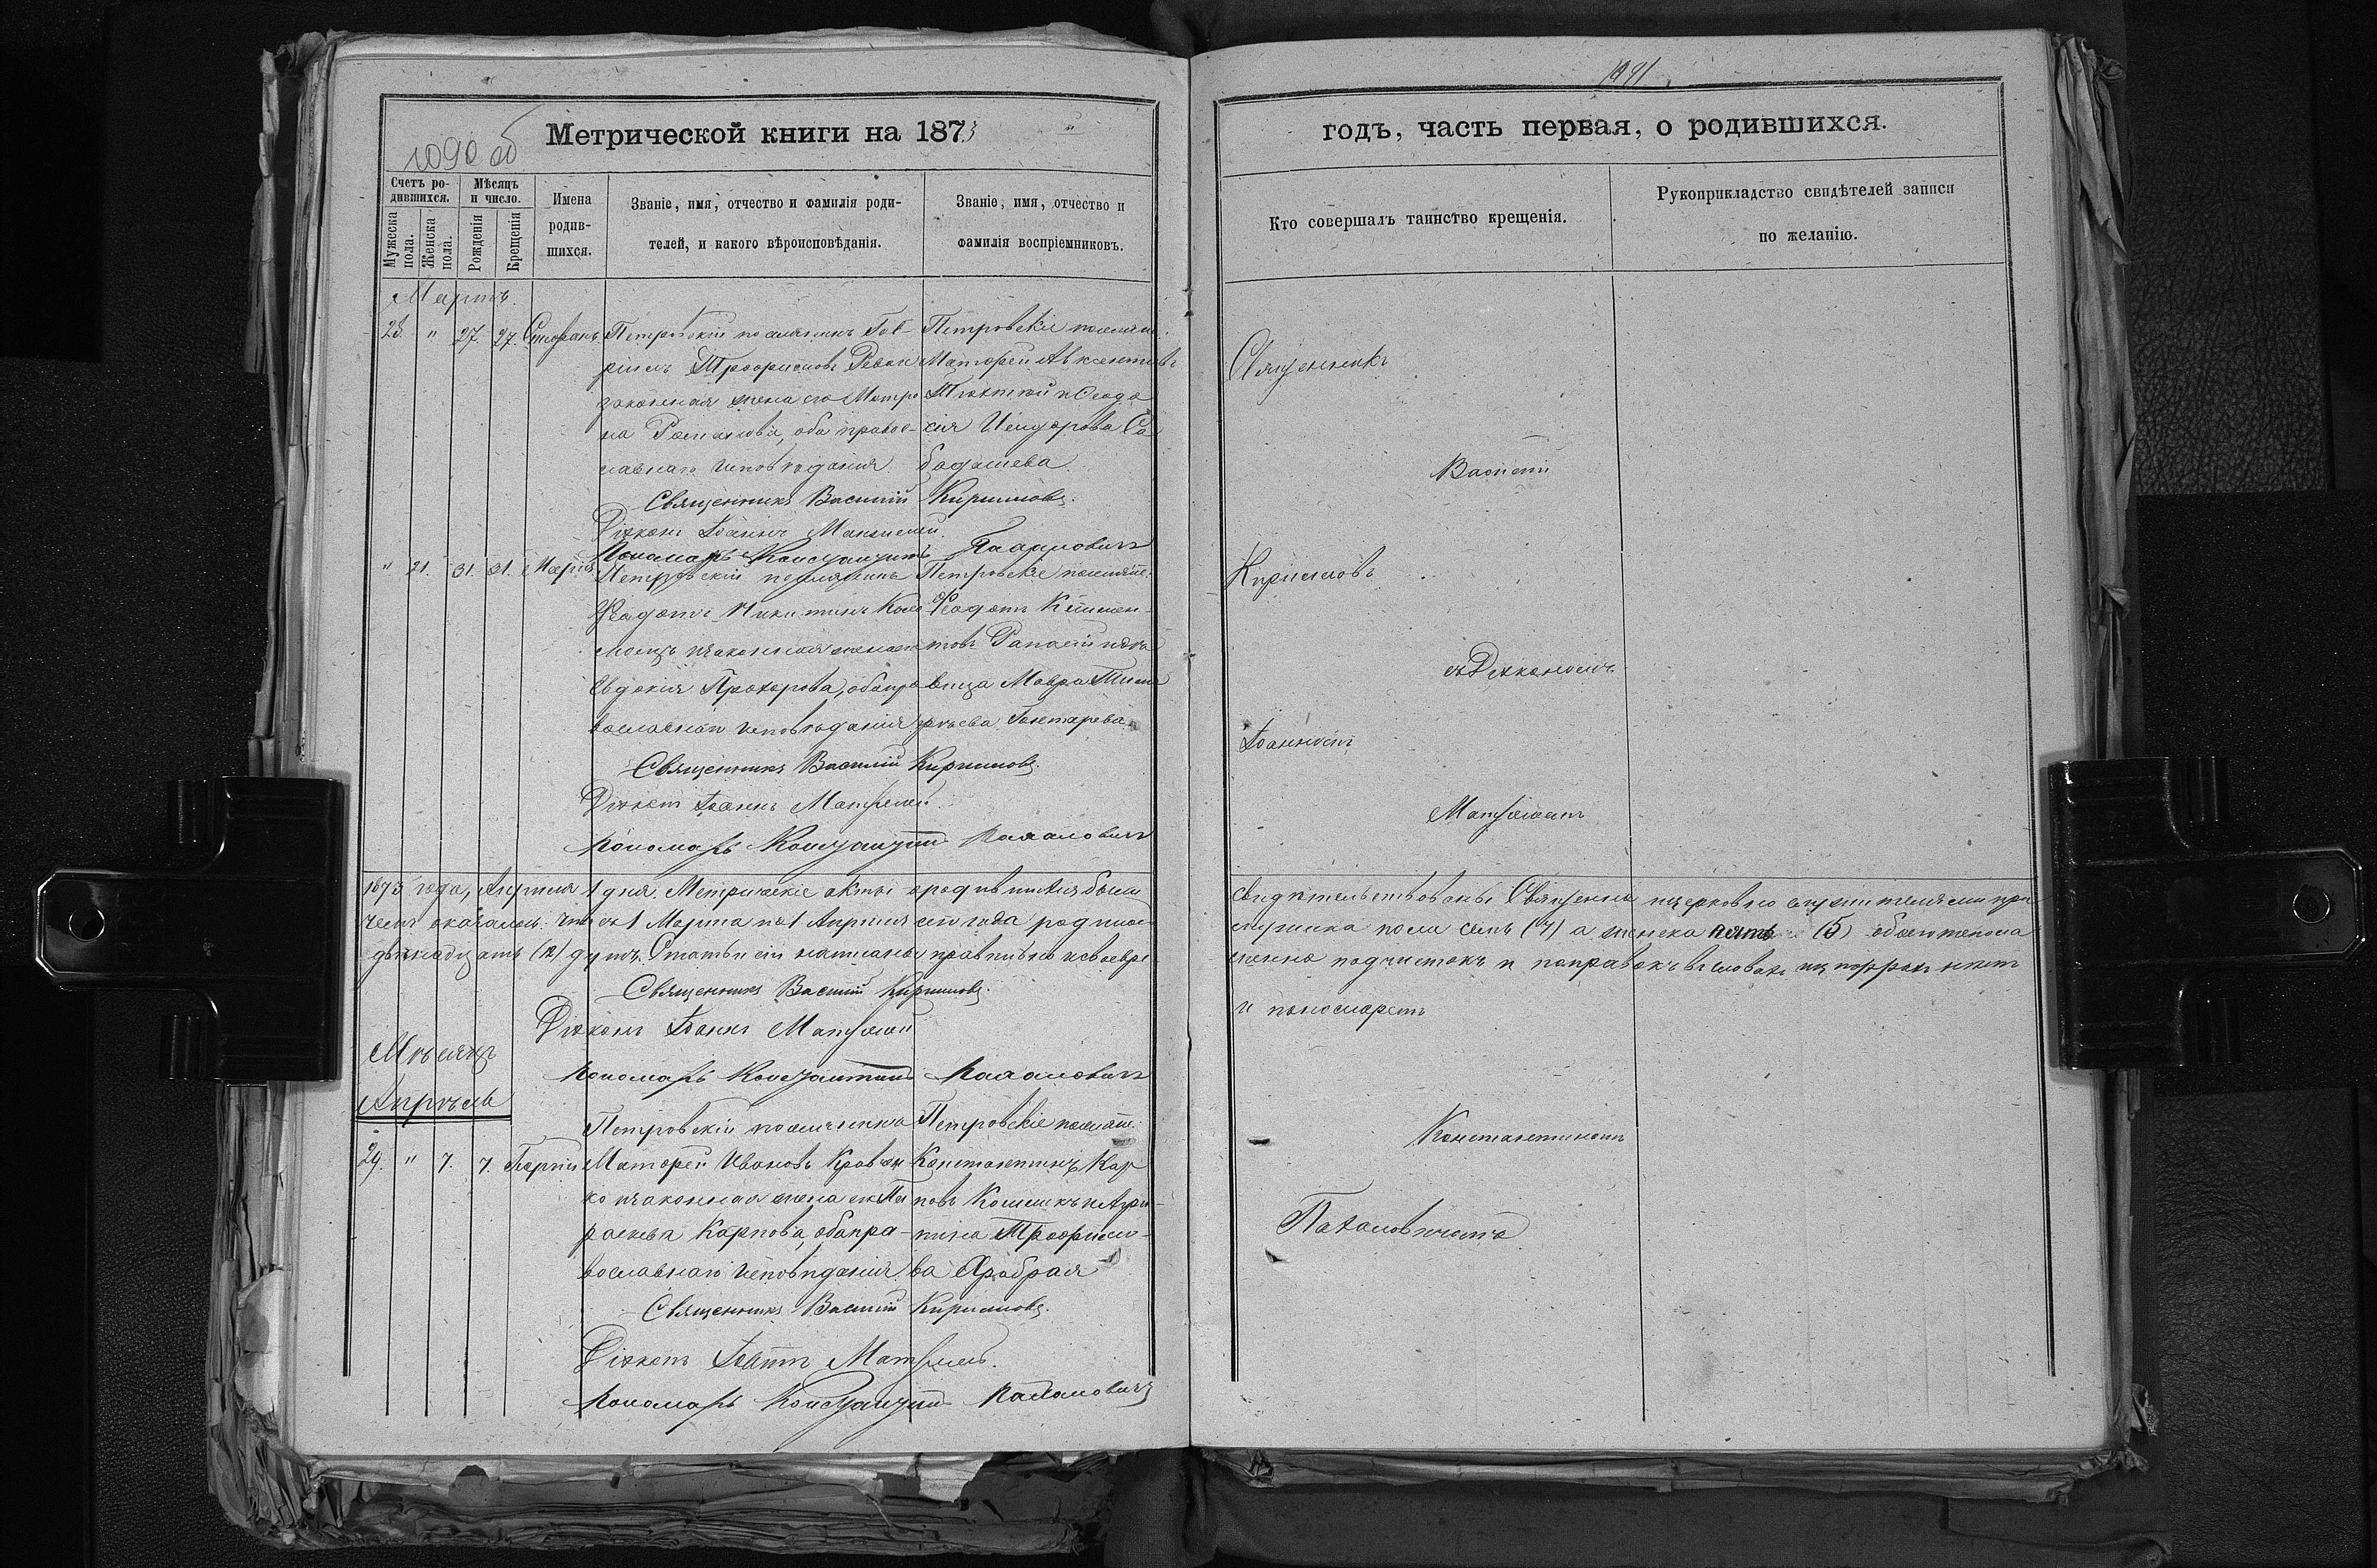 1090 об
Метрической книги на 1873
Счетъ ро-
дившихся.
Мѣсяцъ
и число.
Мужеска
пола.
Женска
пола.
Рожденія
Крещенія
Имена
родив-
шихся.
Званіе, имя, отчество и фамилія роди-
телей, и какого вѣроисповѣданія.
Званіе, имя, отчество и
фамилія воспріемниковъ.
Мартъ.
28. " 27. 27. Стефанъ. Петровскій поселянинъ Гав-
ріилъ Трофимовъ
законная жена его Матро
на Романова, оба правос-
лавнаго исповѣданія.
Петровскіе поселяне
Матфей Авксентіевъ
и Феодо
сія Исидорова
Священникъ Василій Кириловъ.
Діаконъ Іоаннъ
Пономарь Константинъ Пахаловичъ
" 21. 31. 31. Марія Петровскій поселянинъ
Феодотъ Никитинъ Коло
моецъ и законная жена его
Евдокія Прохорова, оба пра
вославнаго исповѣданія
Петровскіе поселяне
Феодотъ Климен-
товъ и дѣ
вица Мавра Тимо
фѣева Гонтарева.
Священникъ Василій Кириловъ.
Діаконъ Іоаннъ
Пономарь Константинъ Пахаловичъ
1873 года, Апрѣля 1 дня. Метрическіе акты о родившихся были
чемъ оказалось: что съ 1 Марта по 1 Апрѣля сего года родилось
двѣнадцать (12) душъ. Статьи сіи написаны правильно и своевре
Священникъ Василій Кириловъ.
Діаконъ Іоаннъ
Пономарь Константинъ Пахаловичъ
Мѣсяцъ
Апрѣль
29. " 7. 7. Георгій Петровскій поселянинъ
Матфей Ивановъ Кравчен
ко и законная жена его Па
раскева Карпова, оба пра-
вославнаго исповѣданія.
Петровскіе поселяне
Константинъ Кар
повъ и Агри-
пина Трофимо-
ва Храбрая
Священникъ Василій Кириловъ.
Діаконъ Іоаннъ
Пономарь Константинъ Пахаловичъ
1091
годъ, часть первая, о родившихся.
Кто совершалъ таинство крещенія.
Рукоприкладство свидѣтелей записи
по желанію.
Священникъ
Василій
Кириловъ
съ Діакономъ
Іоанномъ
свидѣтельствованы Священно и церковно служителями при
мужеска пола семь (7) а женска пять (5) обоего пола
менно подчистокъ и поправокъ въ словахъ и цифрахъ нѣтъ
и пономаремъ
Константиномъ
Пахаловичемъ